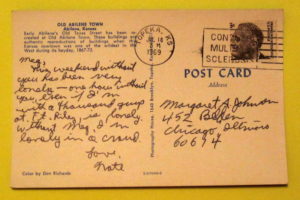 OLD ABILENE TOWN
Abilene, Kansas
Early Abilene's Old Texas Street has been re-
created at Old Abilene Town. These buildings are
authentic reproductions of buildings when this
Kansas cowtown was one of the wildest in the
West during its heyday, 1867-72.
Meg,
This weekend without
you has been very
lonely - one hour without
you, even if I'm
with a thousand guys
at Ft. Riley is lonely.
Without Meg, I'm
lonely in a crowd.
Love,
Nate
Color by Don Richards
TOPEKA, KS
PM
1969
MULT
SCLEROSIS
POST CARD
Address
Margaret S. Johnson
452 Belden
Chicago, Illinois
60614